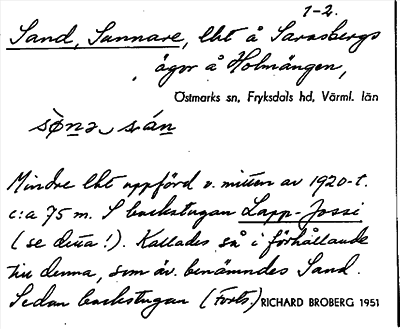 1-2.
Sand, Sunnare, lht å Sarasbergs
ägor å Holmängen,
Östmarks sn, Fryksdals hd, Värml. län
Mindre lht uppförd v. mitten av 1920-t.
c:a 75 m. S backstugan Lapp-Jossi
(se detta!). Kallades så i förhållande
till denna, som äv. benämndes Sand.
Sedan backstugan (Forts.)
RICHARD BROBERG 1951